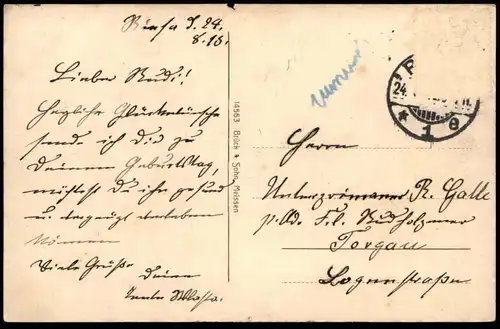 Riesa d. 24.
8.18.
Lieber Rudi!
Herzliche Glückwünsche
sende ich Dir zu
Deinem Geburtstag,
möchtest Du ihn gesund
u. vergnügt verleben
können
Viele Grüße
Deine
Tante
14563 Brück & Sohn, Meissen
24.
* 1 e
Herrn
Unterprimaner R. Galle
p. Ad. Frl.
Torgau
Logenstraße